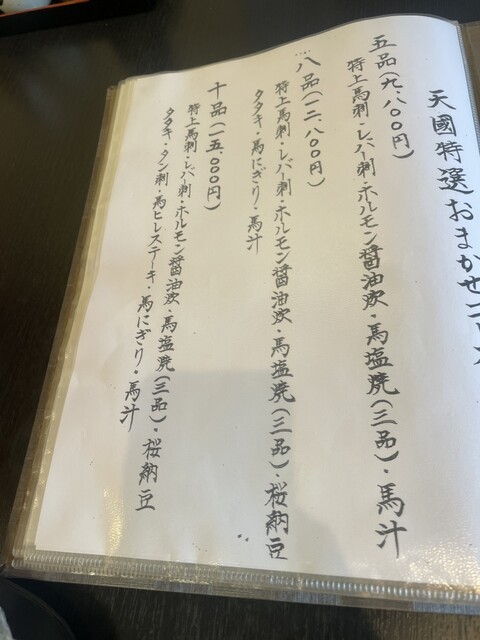 天國特選おまかせコース
五品(九、八〇〇円)
特上馬刺・レバー刺・ホルモン醤油炊・馬塩焼(三品)・馬汁
八品(一二、八〇〇円)
特上馬刺・レバー刺・ホルモン醤油炊・馬塩焼(三品)・桜納豆
タタキ・馬にぎり・馬汁
十品(一五、〇〇〇円)
特上馬刺・レバー刺・ホルモン醤油炊・馬塩焼(三品)・桜納豆
タタキ・タン刺・馬ヒレステーキ・馬にぎり・馬汁